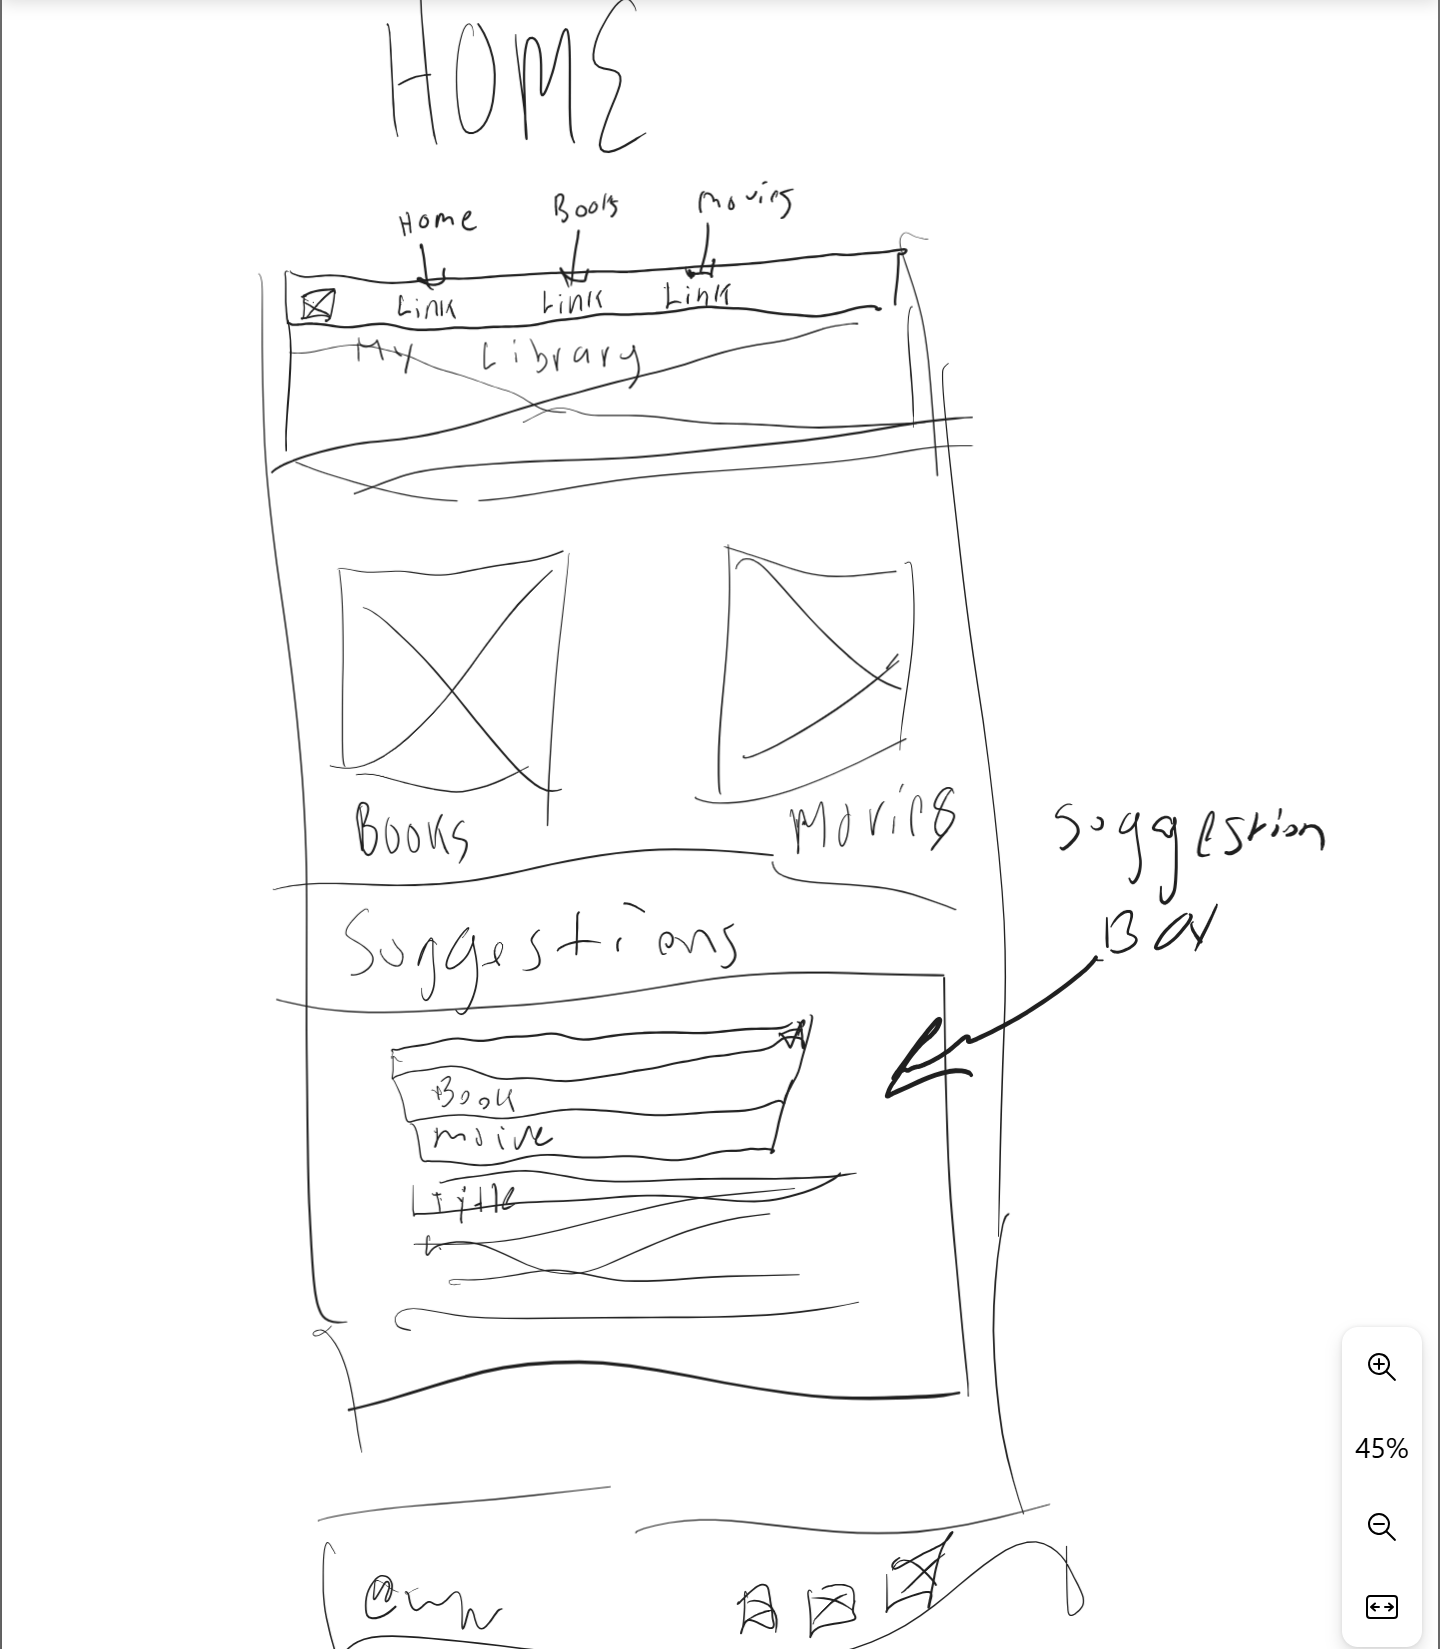 HOME
Home Books Movies
Link Link Link
My Library
Books Movies
Suggestion
Box
Suggestions
Book
moive
Title
45%